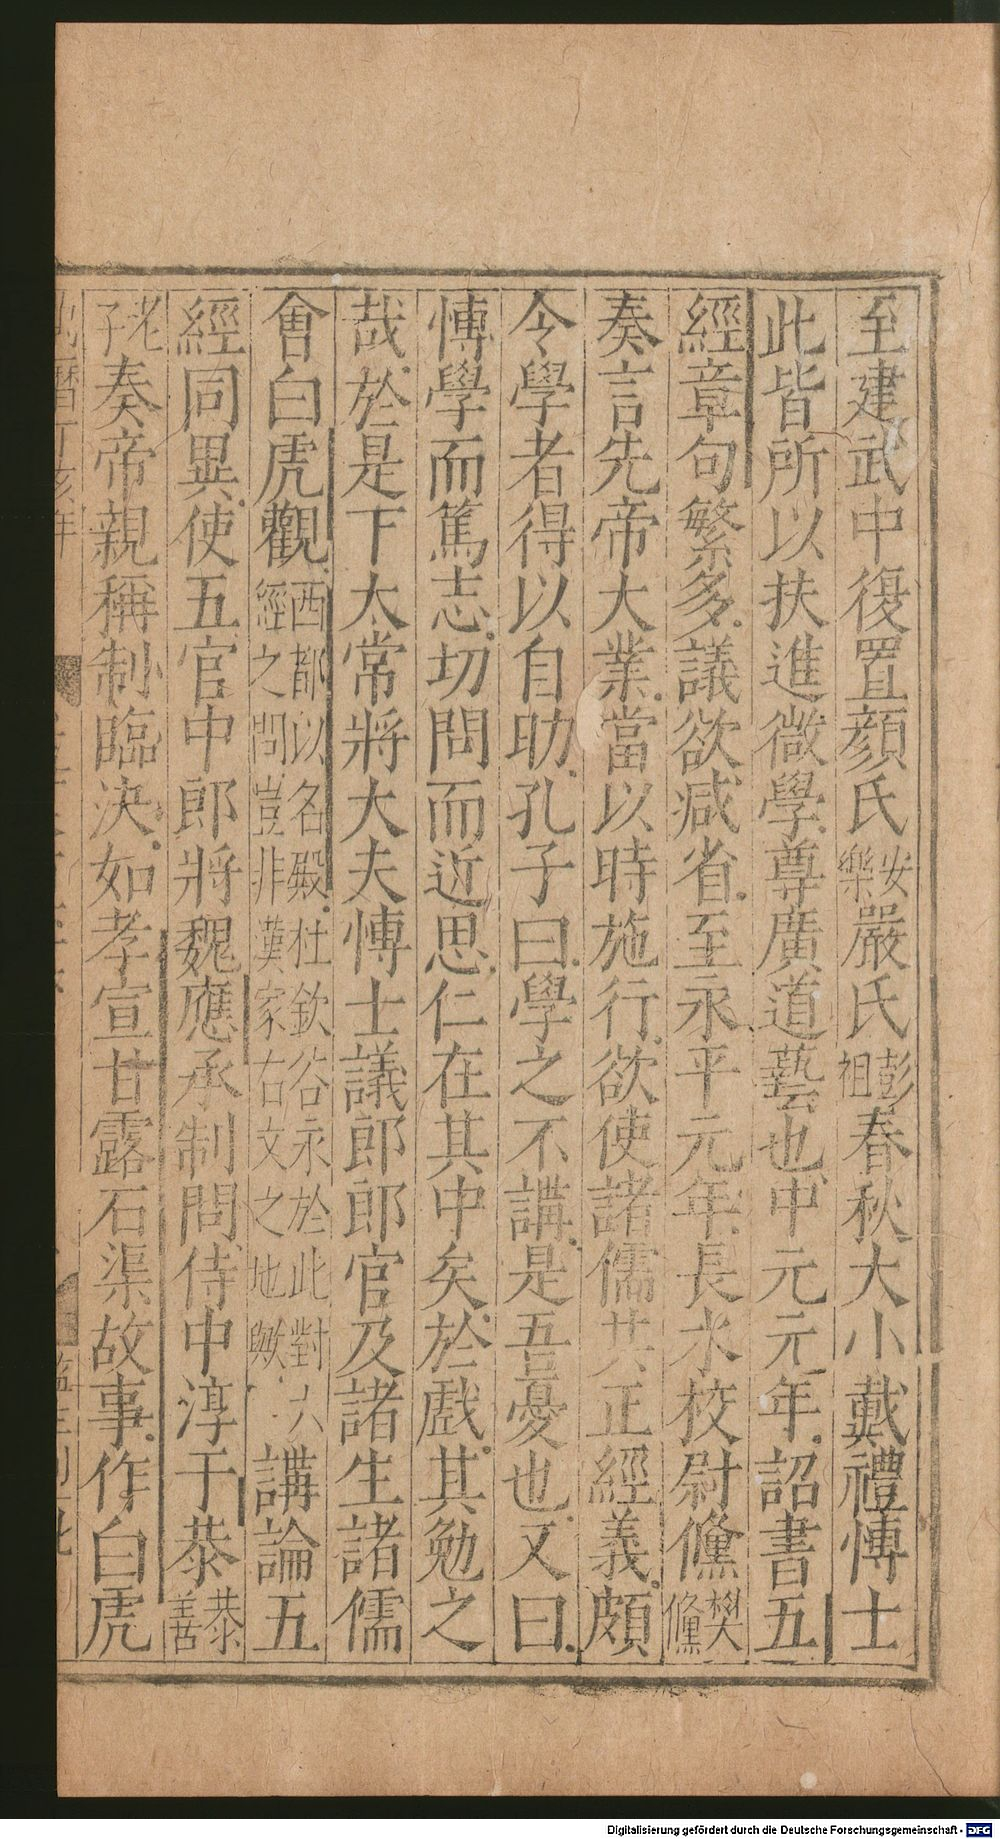 至建武中復置顔氏安樂嚴氏彭祖春秋大小戴禮愽士
此皆所以扶進微學尊廣道藝也中元元年詔書五
經章句繁多議欲减省至永平元年長水校尉儵樊儵
奏言先帝大業當以時施行欲使諸儒共正經義頗
令學者得以自助孔子曰學之不講是吾憂也又曰
愽學而篤志切問而近思仁在其中矣於戲其勉之
哉於是下太常將大夫愽士議郎郎官及諸生諸儒
會白虎觀西都以名殿杜欽谷永於此對六經之問豈非漢家右文之地歟講論五
經同異使五官中郎將魏應承制問侍中淳于恭恭善老
子奏帝親稱制臨決如孝宣甘露石渠故事作白虎
Digitalisierung gefördert durch die Deutsche Forschungsgemeinschaft - DFG